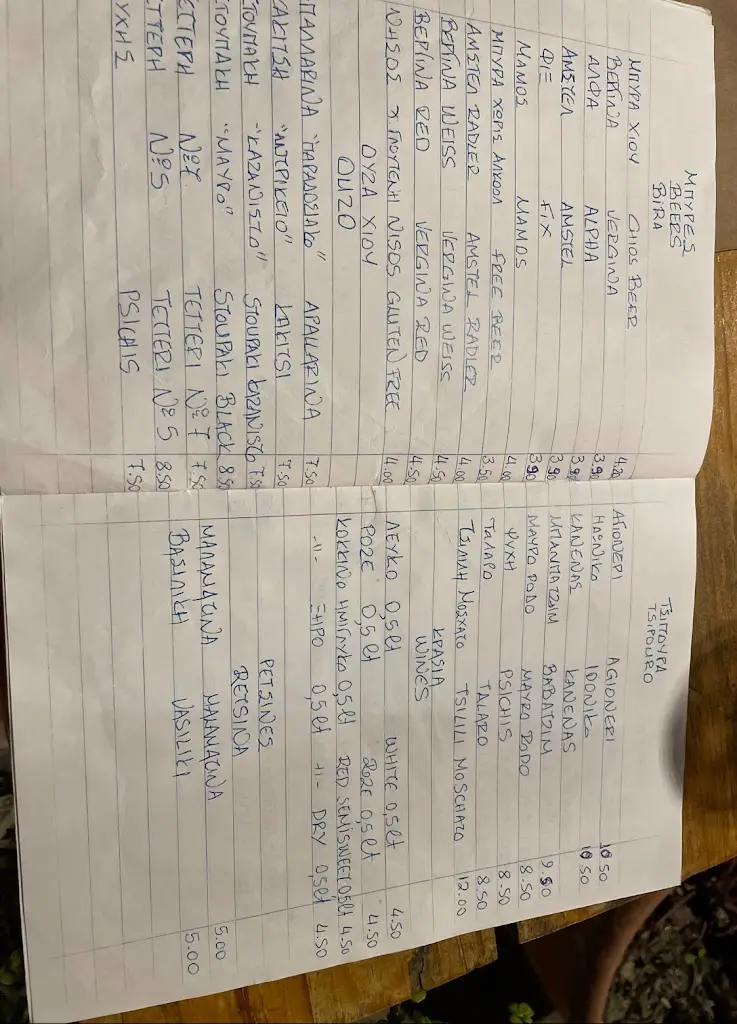 ΜΠΥΡΕΣ
BEERS
BIRA
ΜΠΥΡΑ ΧΙΟΥ CHIOS BEER 4.20
ΒΕΡΓΙΝΑ VERGINA 3.90
ΑΛΦΑ ALPHA 3.90
ΑΜΣΤΕΛ AMSTEL 3.90
ΦΙΞ FIX 3.90
ΜΑΜΟΣ MAMOS 4.00
ΜΠΥΡΑ ΧΩΡΙΣ ΑΛΚΟΟΛ FREE BEER 3.50
AMSTEL RADLER AMSTEL RADLER 4.00
ΒΕΡΓΙΝΑ WEISS VERGINA WEISS 4.50
ΒΕΡΓΙΝΑ RED VERGINA RED 4.50
ΝΗΣΟΣ Χ.ΓΛΟΥΤΕΝΗ NISOS GLUTEN FREE 4.00
ΟΥΖΑ ΧΙΟΥ
OUZO
ΑΠΑΛΛΑΡΙΝΑ "ΠΑΡΑΔΟΣΙΑΚΟ" APALLARINA 7.50
ΚΑΚΙΤΣΗ "ΑΝΤΡΙΚΕΙΟ" KAKITSI 7.50
ΣΤΟΥΠΑΚΗ "ΚΑΖΑΝΙΣΤΟ" STOUPAKI KAZANISTO 7.50
ΣΤΟΥΠΑΚΗ "ΜΑΥΡΟ" STOUPAKI BLACK 8.50
ΤΕΤΤΕΡΗ Νº7 TETTERI Nº 7 7.50
ΤΕΤΤΕΡΗ Νº5 TETTERI Nº 5 8.50
ΨΥΧΗΣ PSICHIS 7.50
ΤΣΙΠΟΥΡΑ
TSIPOURO
ΑΓΙΟΝΕΡΙ AGIONERI 10 50
ΗΔΩΝΙΚΟ IDONIKO 10 50
ΚΑΝΕΝΑΣ KANENAS
ΜΠΑΜΠΑΤΖΙΜ BABATZIM 9.50
ΜΑΥΡΟ ΡΟΔΟ MAYRO RODO 8.50
ΨΥΧΗ PSICHIS 8.50
ΤΑΛΑΡΟ TALARO 8.50
ΤΣΙΛΙΛΗ ΜΟΣΧΑΤΟ TSILILI MOSCHATO 12.00
ΚΡΑΣΙΑ
WINES
ΛΕΥΚΟ 0,5lt WHITE 0,5lt 4.50
ΡΟΖΕ 0,5lt ROZE 0,5lt 4.50
ΚΟΚΚΙΝΟ ΗΜΙΓΛΥΚΟ 0,5lt RED SEMISWEET 0,5lt 4.50
-11- ΞΗΡΟ 0,5lt -11- DRY 0,5lt 4.50
ΡΕΤΣΙΝΕΣ
RETSINA
ΜΑΛΑΜΑΤΙΝΑ MALAMATINA 5.00
ΒΑΣΙΛΙΚΗ VASILIKI 5.00